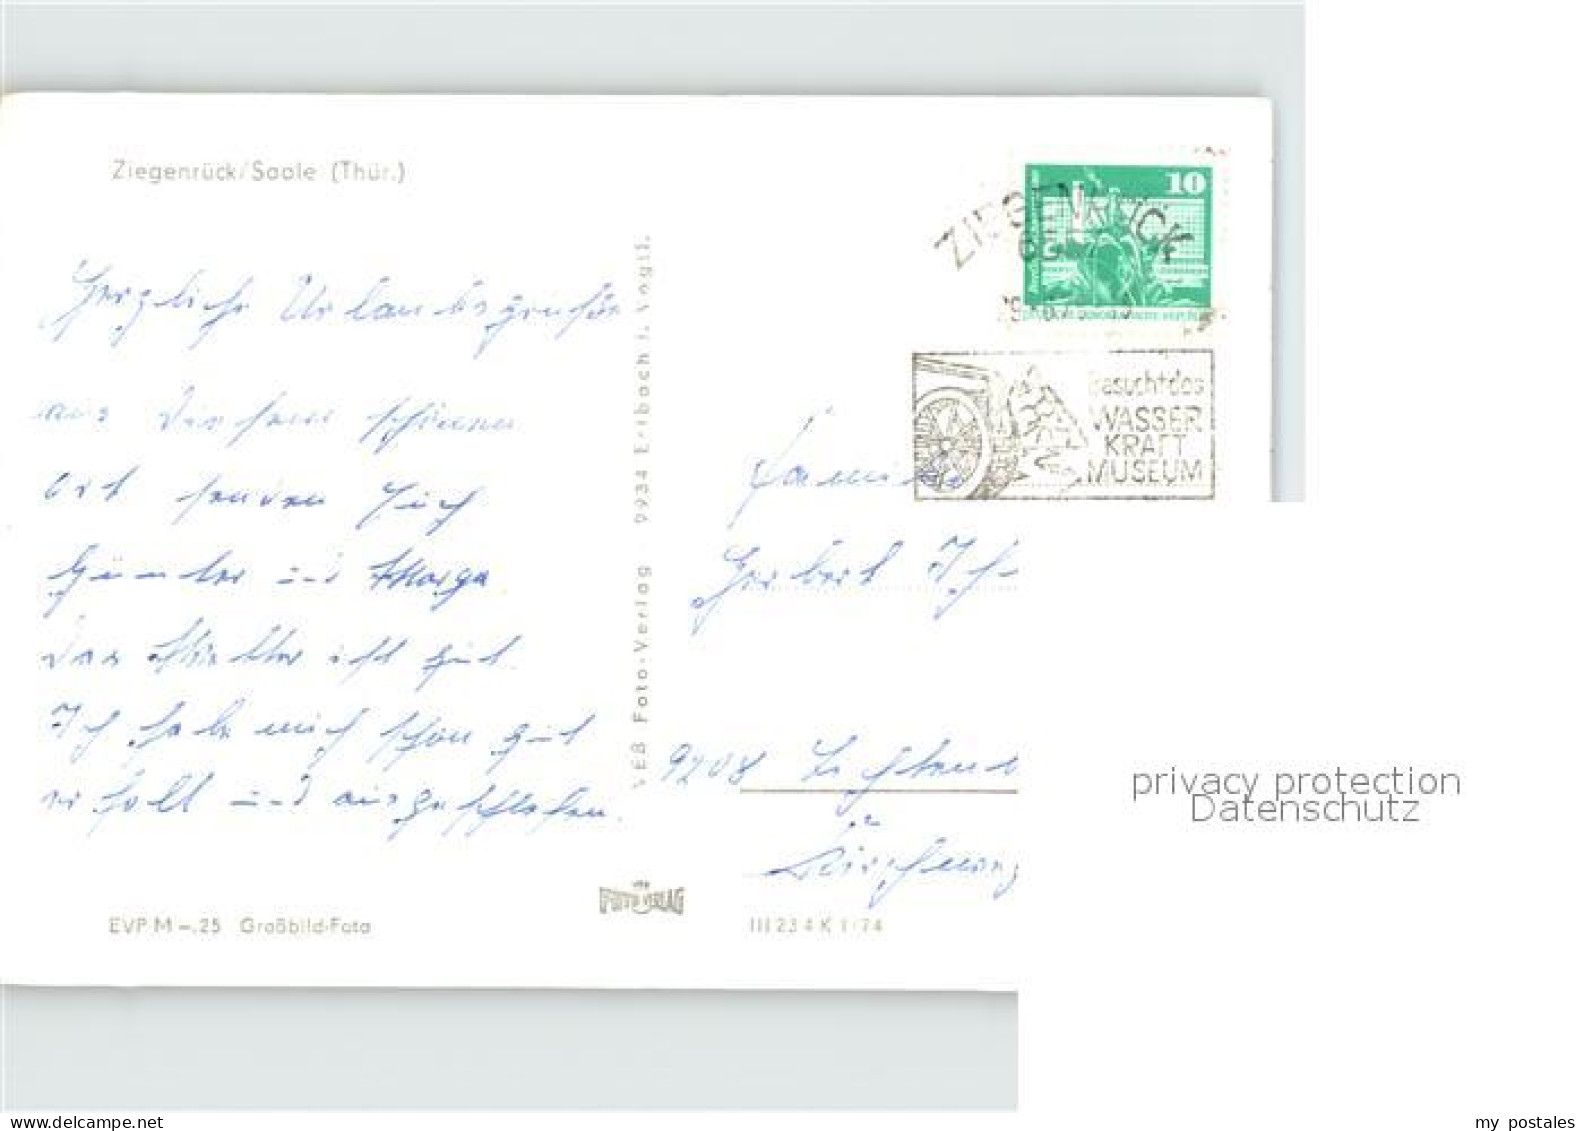 Ziegenrück/Saale (Thür.)
Herzliche Urlaubsgrüße
aus diesem schönen
Ort senden Euch
Günter und Helga
Das Wetter ist gut
Ich habe mich schon gut
erholt und ausgeschlafen.
EVP M -.25 Großbild-Foto
VEB Foto-Verlag 9934 Erlbach i. Vogtl.
FOTO VERLAG
III 23 4 K 1/74
10
ZIEGENRÜCK
besucht das
WASSER
KRAFT
MUSEUM
Herbert
9208
privacy protection
Datenschutz
my postales